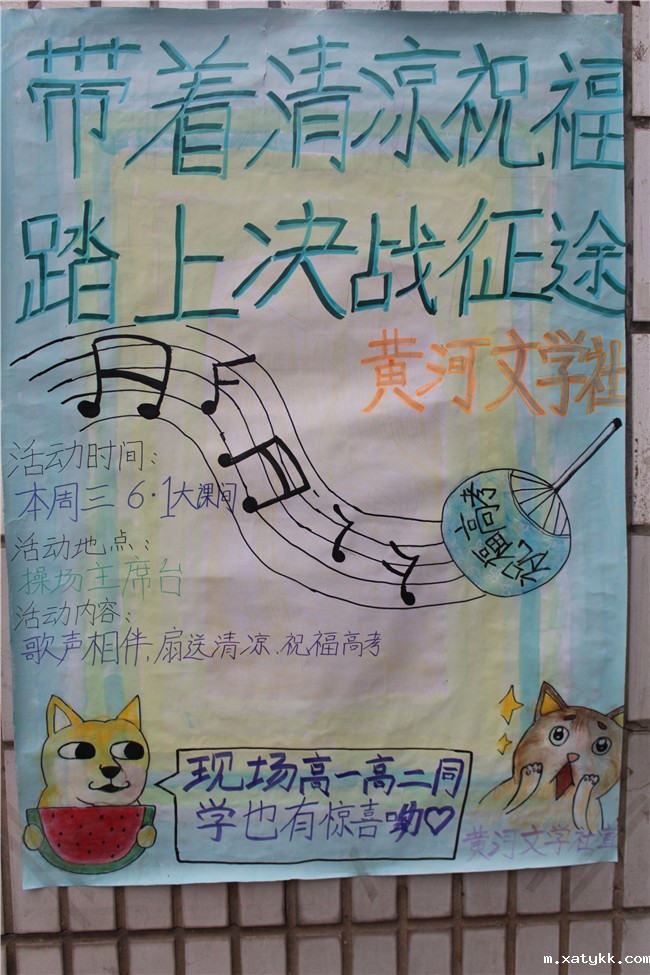 带着清凉祝福
踏上决战征途
黄河文学社
活动时间:
本周三 6·1大课间
活动地点:
操场主席台
活动内容:
歌声相伴,扇送清凉,祝福高考
祝福高考
现场高一高二同
学也有惊喜呦♡
黄河文学社宣
m.xatykk.com